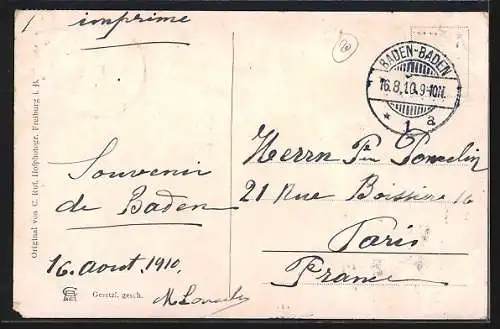 imprimé
BADEN-BADEN
16.8.10.9-10N.
* 1 a
Souvenir
de Baden
16. aout 1910.
Herrn
21 Rue Boissière 16
Paris
France
Original von C. Ruf, Hofphotogr. Freiburg i. B.
Gesetzl. gesch.